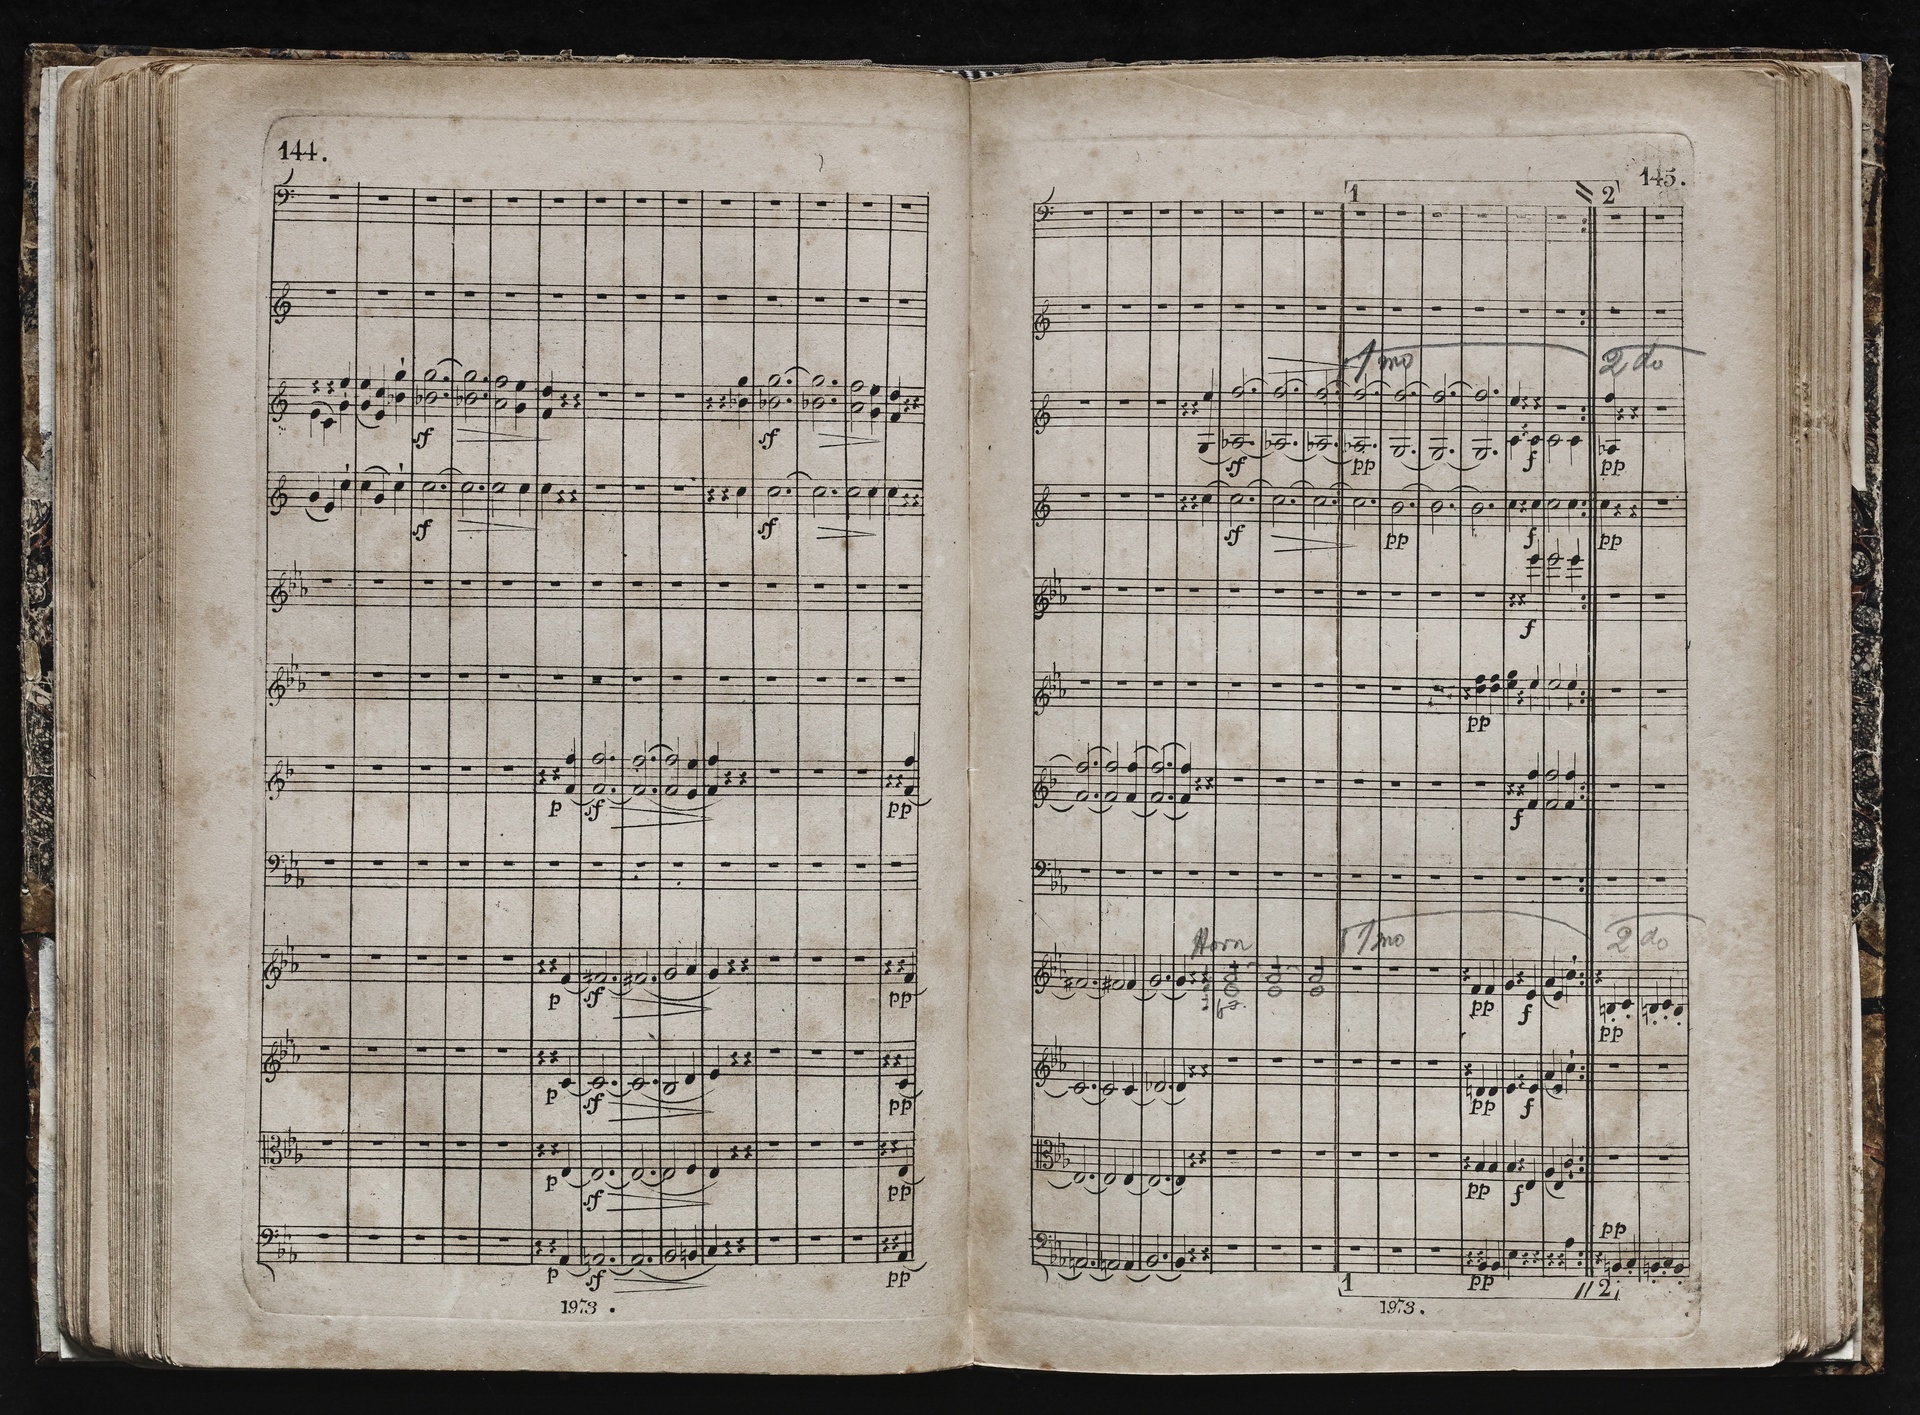 144.
sf
sf
sf
sf
p
sf
pp
p
sf
pp
p
sf
pp
p
sf
pp
p
sf
pp
1973.
145.
1
2
1mo
2do
sf
pp
f
pp
sf
pp
f
pp
f
pp
f
Horn
1mo
2do
pp
f
pp
pp
f
pp
f
pp
pp
1
2
1973.